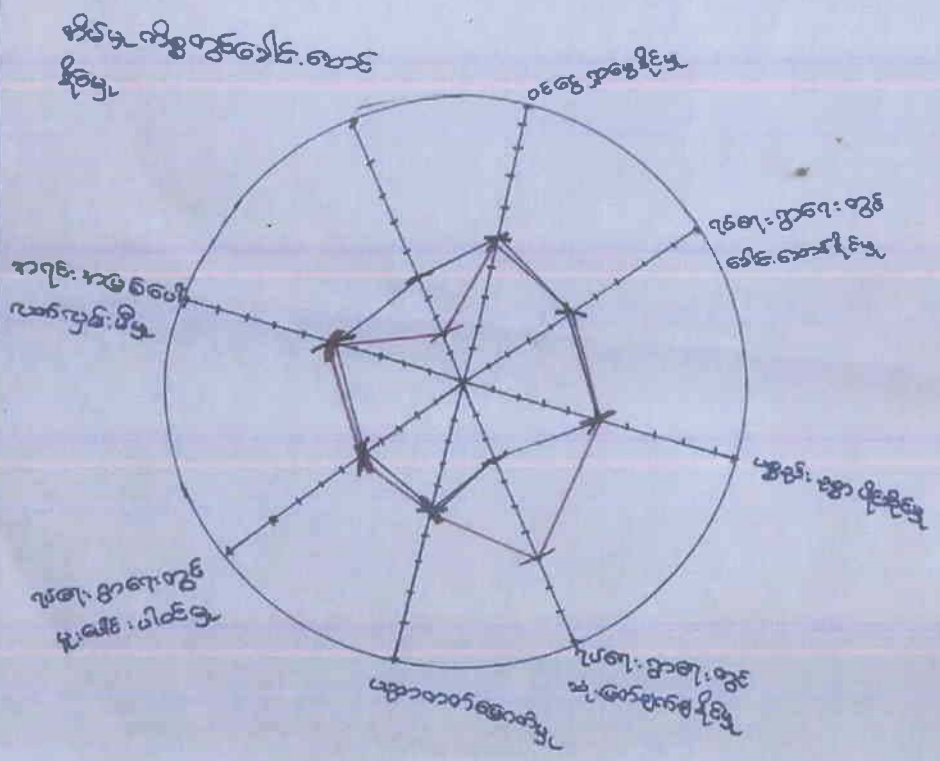 အိမ်မှု ကိစ္စတွင်ခေါင်းဆောင်
နိုင်မှု
ဝင်ငွေ ရှာဖွေနိုင်မှု
ရပ်ရေးရွာရေးတွင်
ခေါင်းဆောင်နိုင်မှု
ပစ္စည်းဥစ္စာ ပိုင်ဆိုင်မှု
ရပ်ရေးရွာရေးတွင်
ဆုံးဖြတ်ချက်ချနိုင်မှု
ပညာတတ်မြောက်မှု
ရပ်ရေးရွာရေးတွင်
ပူးပေါင်းပါဝင်မှု
အရင်းအမြစ်ပေါ်
လက်လှမ်းမီမှု